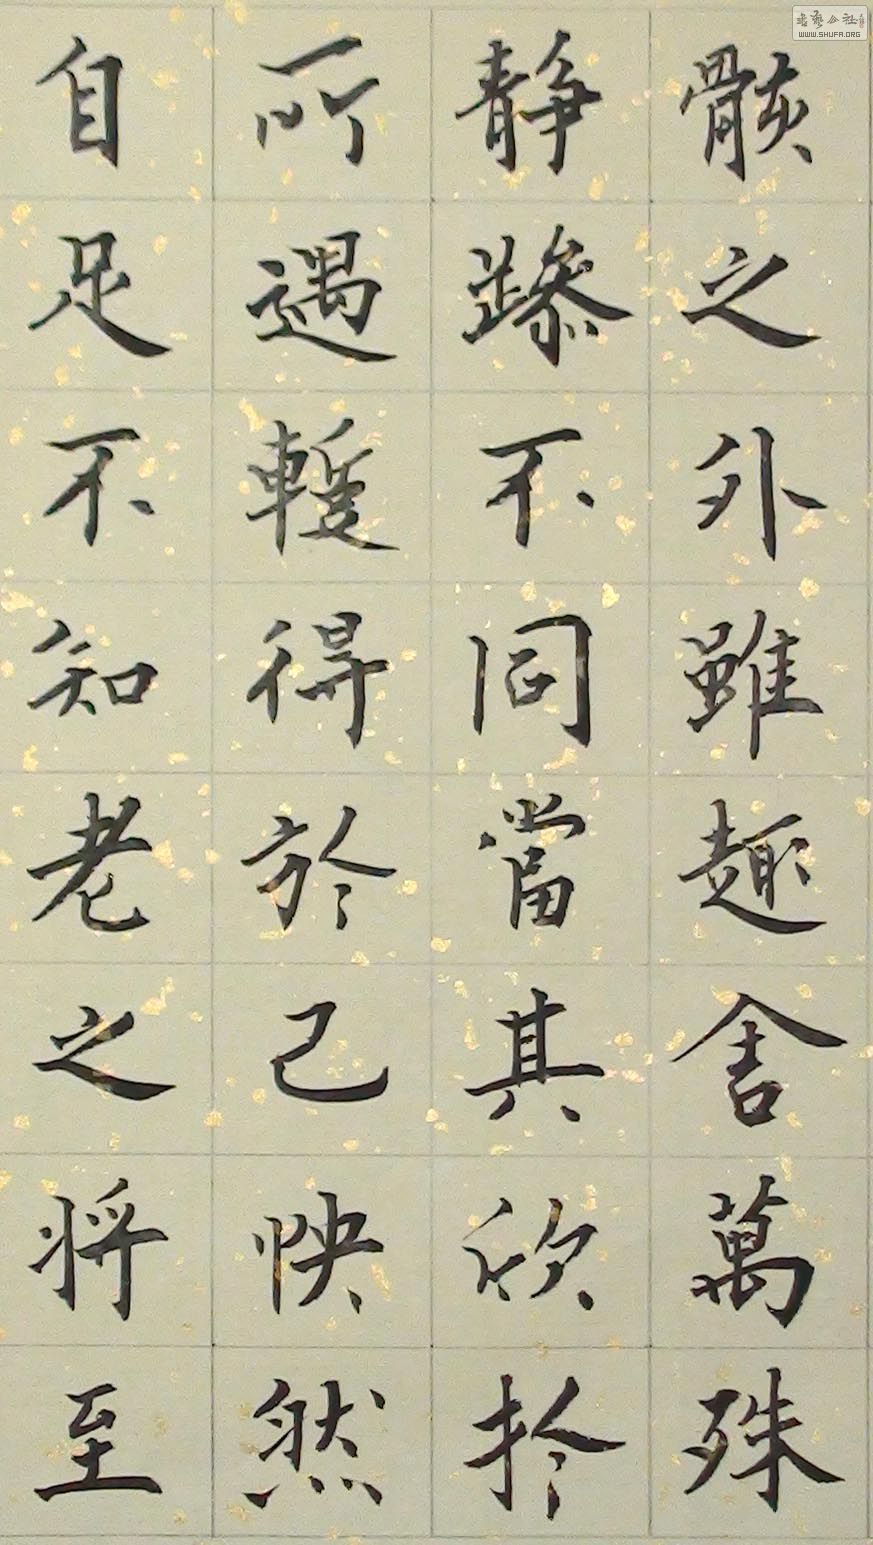 骸之外雖趣舍萬殊
静躁不同當其欣扵
所遇蹔得於己怏然
自足不知老之将至
书艺公社
WWW.SHUFA.ORG